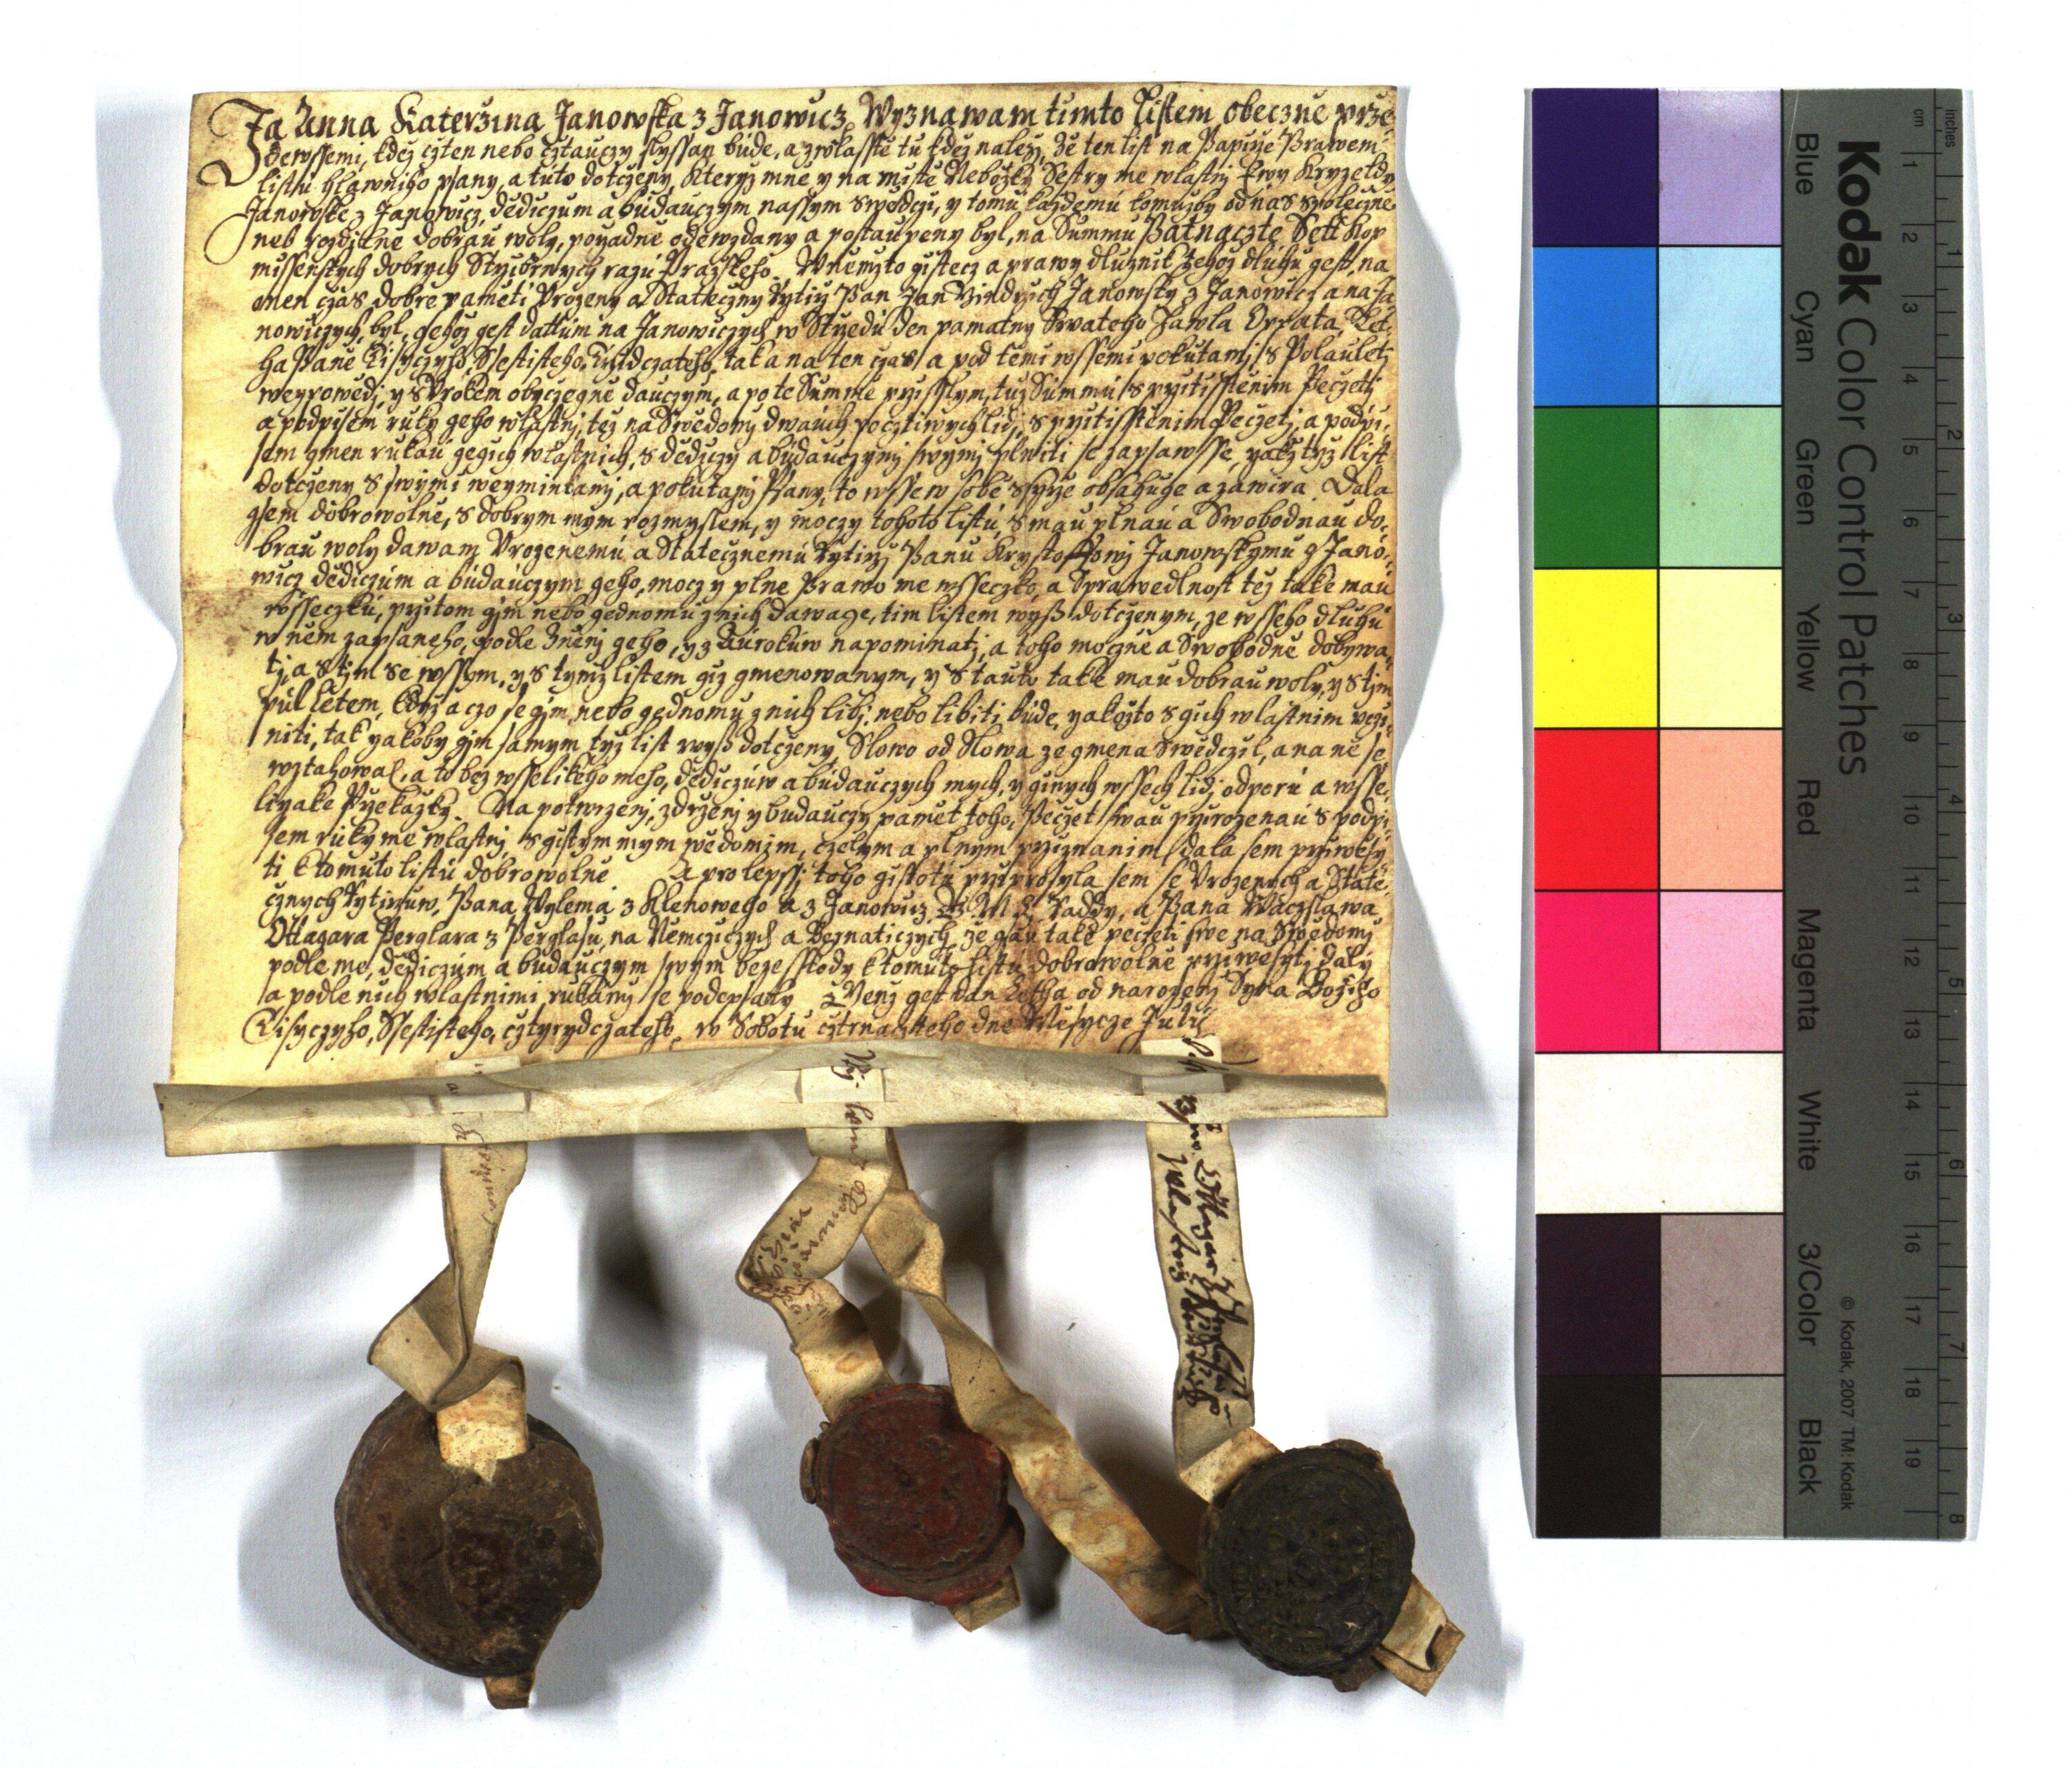 Ja Anna Katerzina Janowska z Janowicz, Wyznawam timto listem obeczně przě-
dewssemi, kdež czten nebo cztauczy slyssan bude, a zwlasstě tu kdež naležj, že ten list na Papirže Prawem
listu hlawniho psany, a tuto dotczeny, kteryž mně y na mistě Nebožky Sestry mé wlastnj Ewy Kryzeldy
Janowské z Janowicz, dědiczum a budauczym nassym swědczj, y tomu každému komužby od nás společně
neb rozdjlně dobrau woly, pořadně odewzdany a postaupeny byl, na Summu Patnaczte Sett kop
missenských dobrych Stržibrnych razu Pražského. W němžto gistecz a prawy dlužnik tehož dluhu gest, na
onen czas dobré paměti Urozeny a Stateczny Rytirž Pan Jan Gindrzich Janowsky z Janowicz a na Ja-
nowiczych, byl, gehož gest dattum na Janowiczych w Stržedu den pamatny Swatého Hawla Oppata, Let-
ha Paně Tisyczyho, Ssestisteho, tak a na ten czas, a pod temi wssemi pokutami, s Polauletj
weypowědj, y s Urokem obyczegně dauczym, a po té Summě przisslym, tuž Summu s przitisstěnim Peczetj
a podpisem ruky geho wlastnj, též na Swědomj dwauch pocztiwych lidj, s przitisstěnim Peczetj, a podpi-
sem gmen rukau gegich wlastnich, s dědiczy a budauczymi swymi plniti se zapsawsse, yakž tyž list
dotczeny s swymi weyminkami, a pokutami Psany, to wsse w sobě ssyrže obsahuge a zawira. Dala
gsem dobrowolně, s dobrym mym rozmyslem, y moczy tohoto listu, s mau plnau a Swobodnau do-
brau woly dawam Urozenému a Statecznému Rytirži Panu Krystoffowj Janowskymu z Jano-
wicz dědiczum a budauczym geho, mocz y plné Prawo mé wsseczko, a Sprawedlnost též také mau
wsseczku, przitom gjm nebo gednomu z nich dawage, tim listem wyss dotczenym, ze wsseho dluhu
w něm zapsaného, podle zněnj geho, y z Aurokuw napominati, a toho mocně a Swobodně dobywa-
ti, a s tjm se wssym, y s tymž listem giž gmenowanym, y s tauto také mau dobrau woly, y s tjm
pul létem, když a czo se gjm, nebo gednomu z nich libj, nebo libiti bude, yakožto s gich wlastnim uczi-
niti, tak yakoby gjm samym tyž list wyss dotczeny, Slowo od Slowa ze gmena swědczil, a na ně se
wztahowal, a to bez wsselikého mého, dědiczuw a budauczych mych, y ginych wssech lidj, odporu a wsse-
liyaké Przekažky. Na potwrzenj, zdrženj y budauczy paměť toho, Peczet swau przirozenau s podpi-
sem ruky mé wlastnj s gistym mym wědomim, czelym a plnym przizranim, dala sem przivěsy-
ti k tomuto listu dobrowolně A pro lepssj toho gistotu przyprosyla sem se Urozenych a Státe-
cznych Rytirzuw, Pana Wylema z Klenowého a z Janowicz, Raddy, a Pana Waczslawa
Ottagara Perglara z Perglasu, na Němcziczych a Bernaticzych, že gsau také peczeti swé na Swědomj
podle mé, dědiczum a budauczym swym beze sskody k tomuto listu dobrowolně przivěsyti daly
a podle nich wlastnimi rukamj se podepsaly Genž gest dan Letha od narozenj Syna Božiho
Tisyczyho, Ssestistého, cztyrydczatého, w Sobotu cztrnacztého dne Měsycze July
Kodak Color Control Patches
Blue
Cyan
Green
Yellow
Red
Magenta
White
3/Color
Black
© Kodak, 2007 TM: Kodak
cm 1 2 3 4 5 6 7 8 9 10 11 12 13 14 15 16 17 18 19
inches 1 2 3 4 5 6 7 8